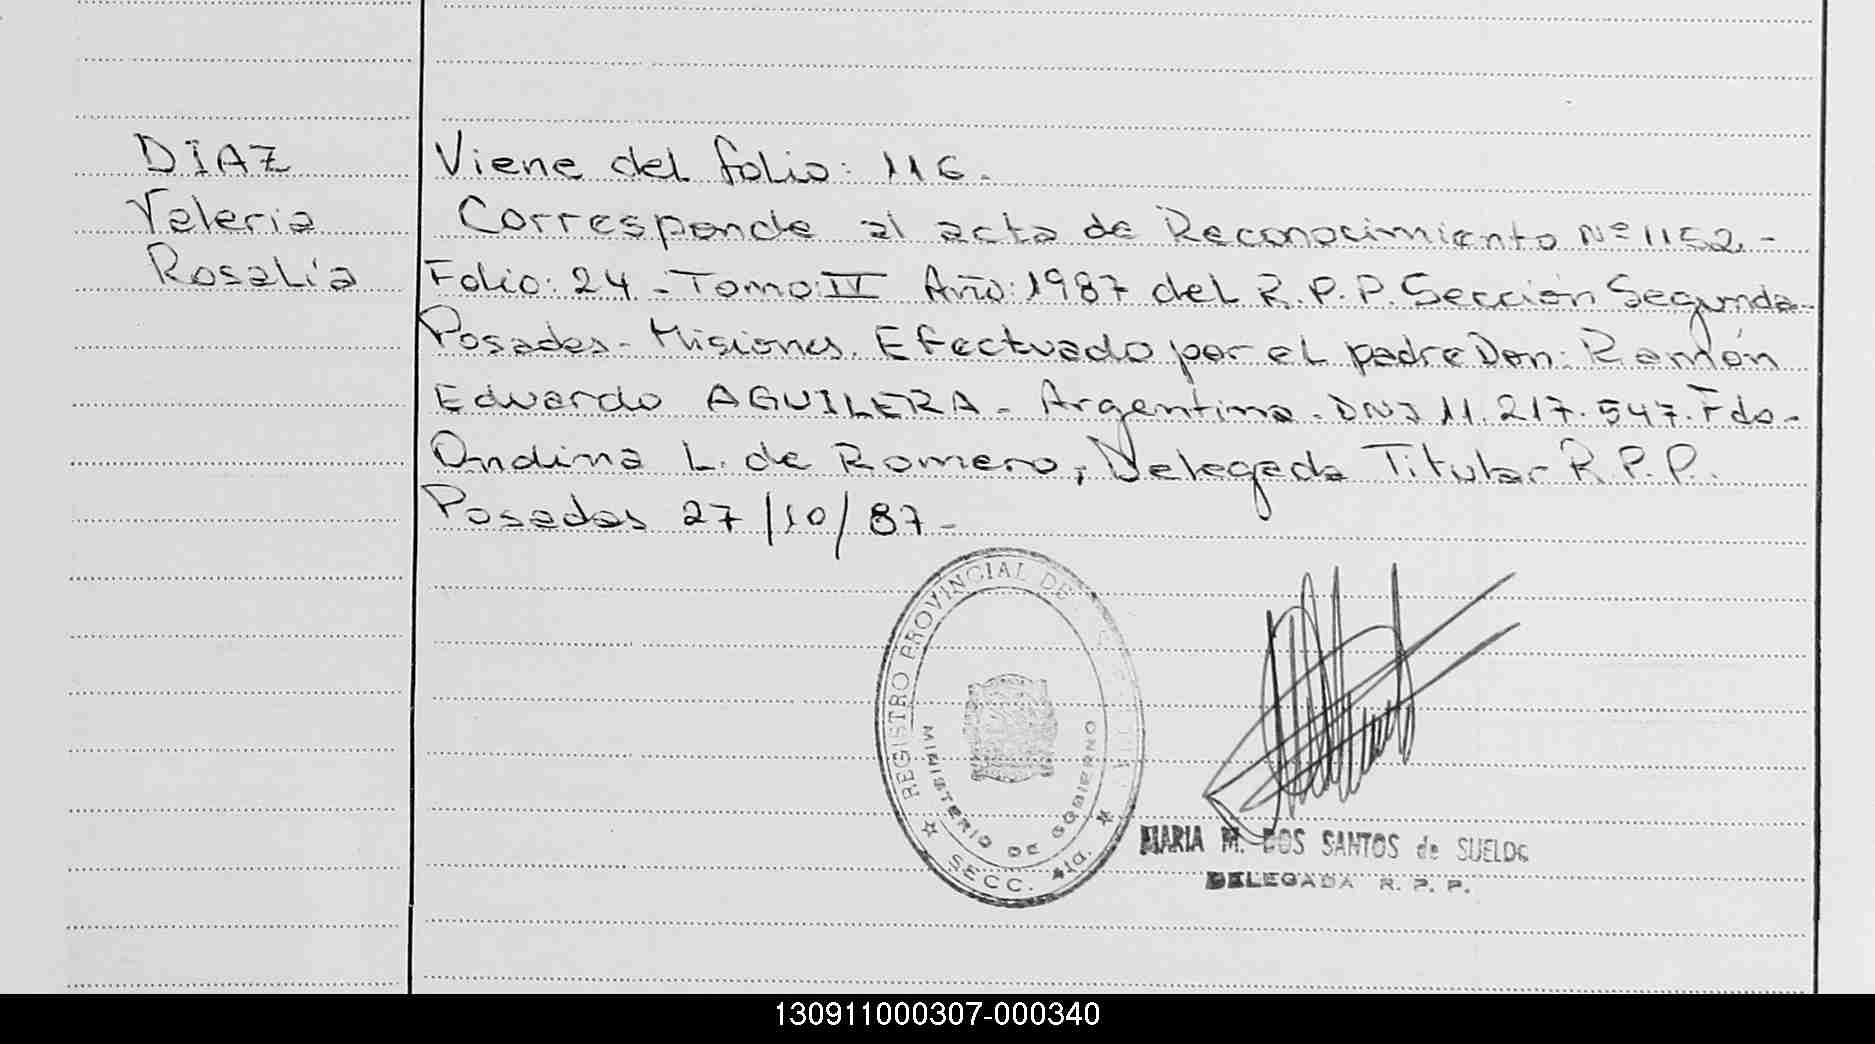 DIAZ
Valeria
Rosalía
Viene del folio: 116.
Corresponde al acta de Reconocimiento Nº 1152 -
Folio: 24 - Tomo: IV Año: 1987 del R.P.P. Sección Segunda -
Posadas - Misiones. Efectuado por el padre Don: Ramón
Eduardo AGUILERA - Argentino - DNI 11.217.547. Fdo -
Ondina L. de Romero, Delegada Titular R.P.P.
Posadas 27/10/87 -
REGISTRO PROVINCIAL DE
MINISTERIO DE GOBIERNO
SECC. 4ta.
MARIA M. DOS SANTOS de SUELDO
DELEGADA R. P. P.
130911000307-000340